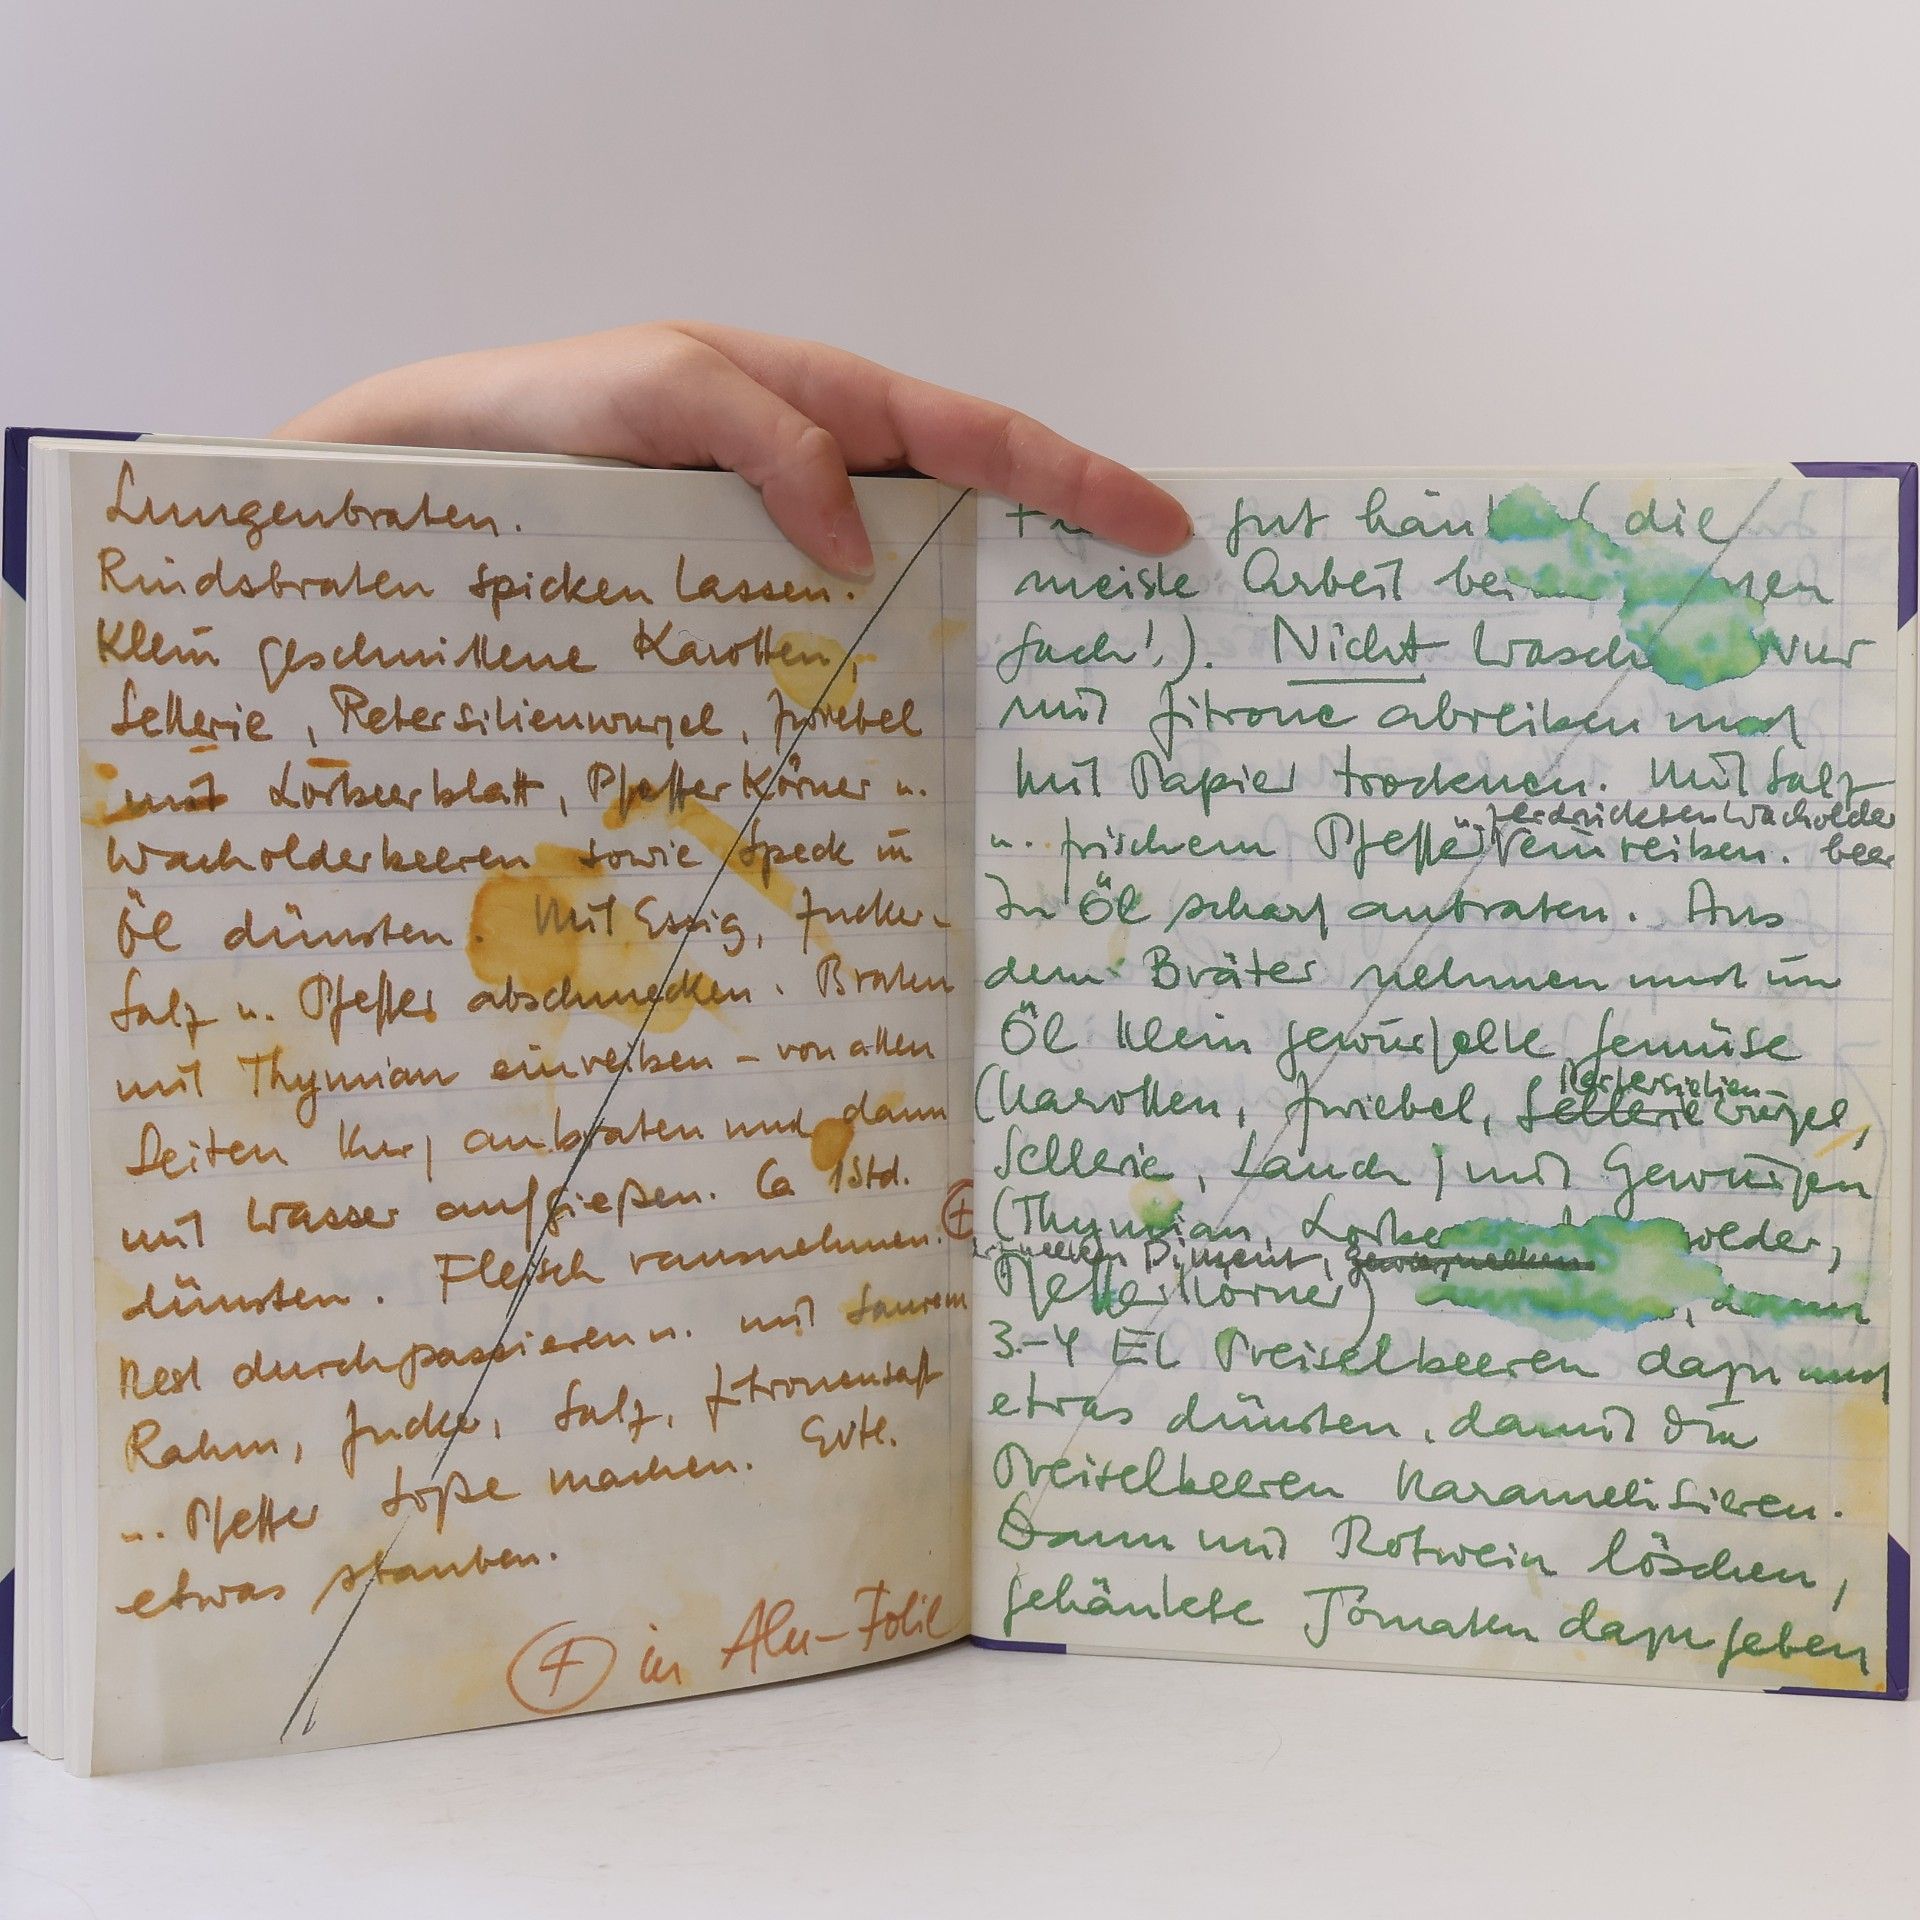 Lungenbraten.
Rindsbraten spicken lassen.
Klein geschnittene Karotten,
Sellerie, Petersilienwurzel, Zwiebel
mit Lorbeerblatt, Pfefferkörner u.
Wacholderbeeren sowie Speck in
Öl dünsten. Mit Essig, Zucker-
Salz u. Pfeffer abschmecken. Braten
mit Thymian einreiben - von allen
Seiten kurz anbraten und dann
mit Wasser aufgießen. Ca 1 Std.
dünsten. Fleisch rausnehmen. +
Rest durchpassieren u. mit saurem
Rahm, Zucker, Salz, Zitronensaft
u. Pfeffer Soße machen. Evtl.
etwas stauben.
+ in Alu-Folie
gut die
meiste Arbeit
Sach'!). Nicht Nur
mit Zitrone abreiben und
mit Papier trocknen. Mit Salz
u. zerdrückten Wacholder
u. frischem Pfeffer einreiben. beer
In Öl scharf anbraten. Aus
dem Bräter nehmen und im
Öl klein gewürfelte Gemüse
Petersilien-
(Karotten, Zwiebel, Sellerie wurzel,
Sellerie, Lauch) mit Gewürzen
(Thymian,
Piment, Gewürznelken
Pfefferkörner) , dann
3-4 EL Preiselbeeren dazu und
etwas dünsten, damit die
Preiselbeeren karamelisieren.
Dann mit Rotwein löschen,
gehäutete Tomaten dazugeben